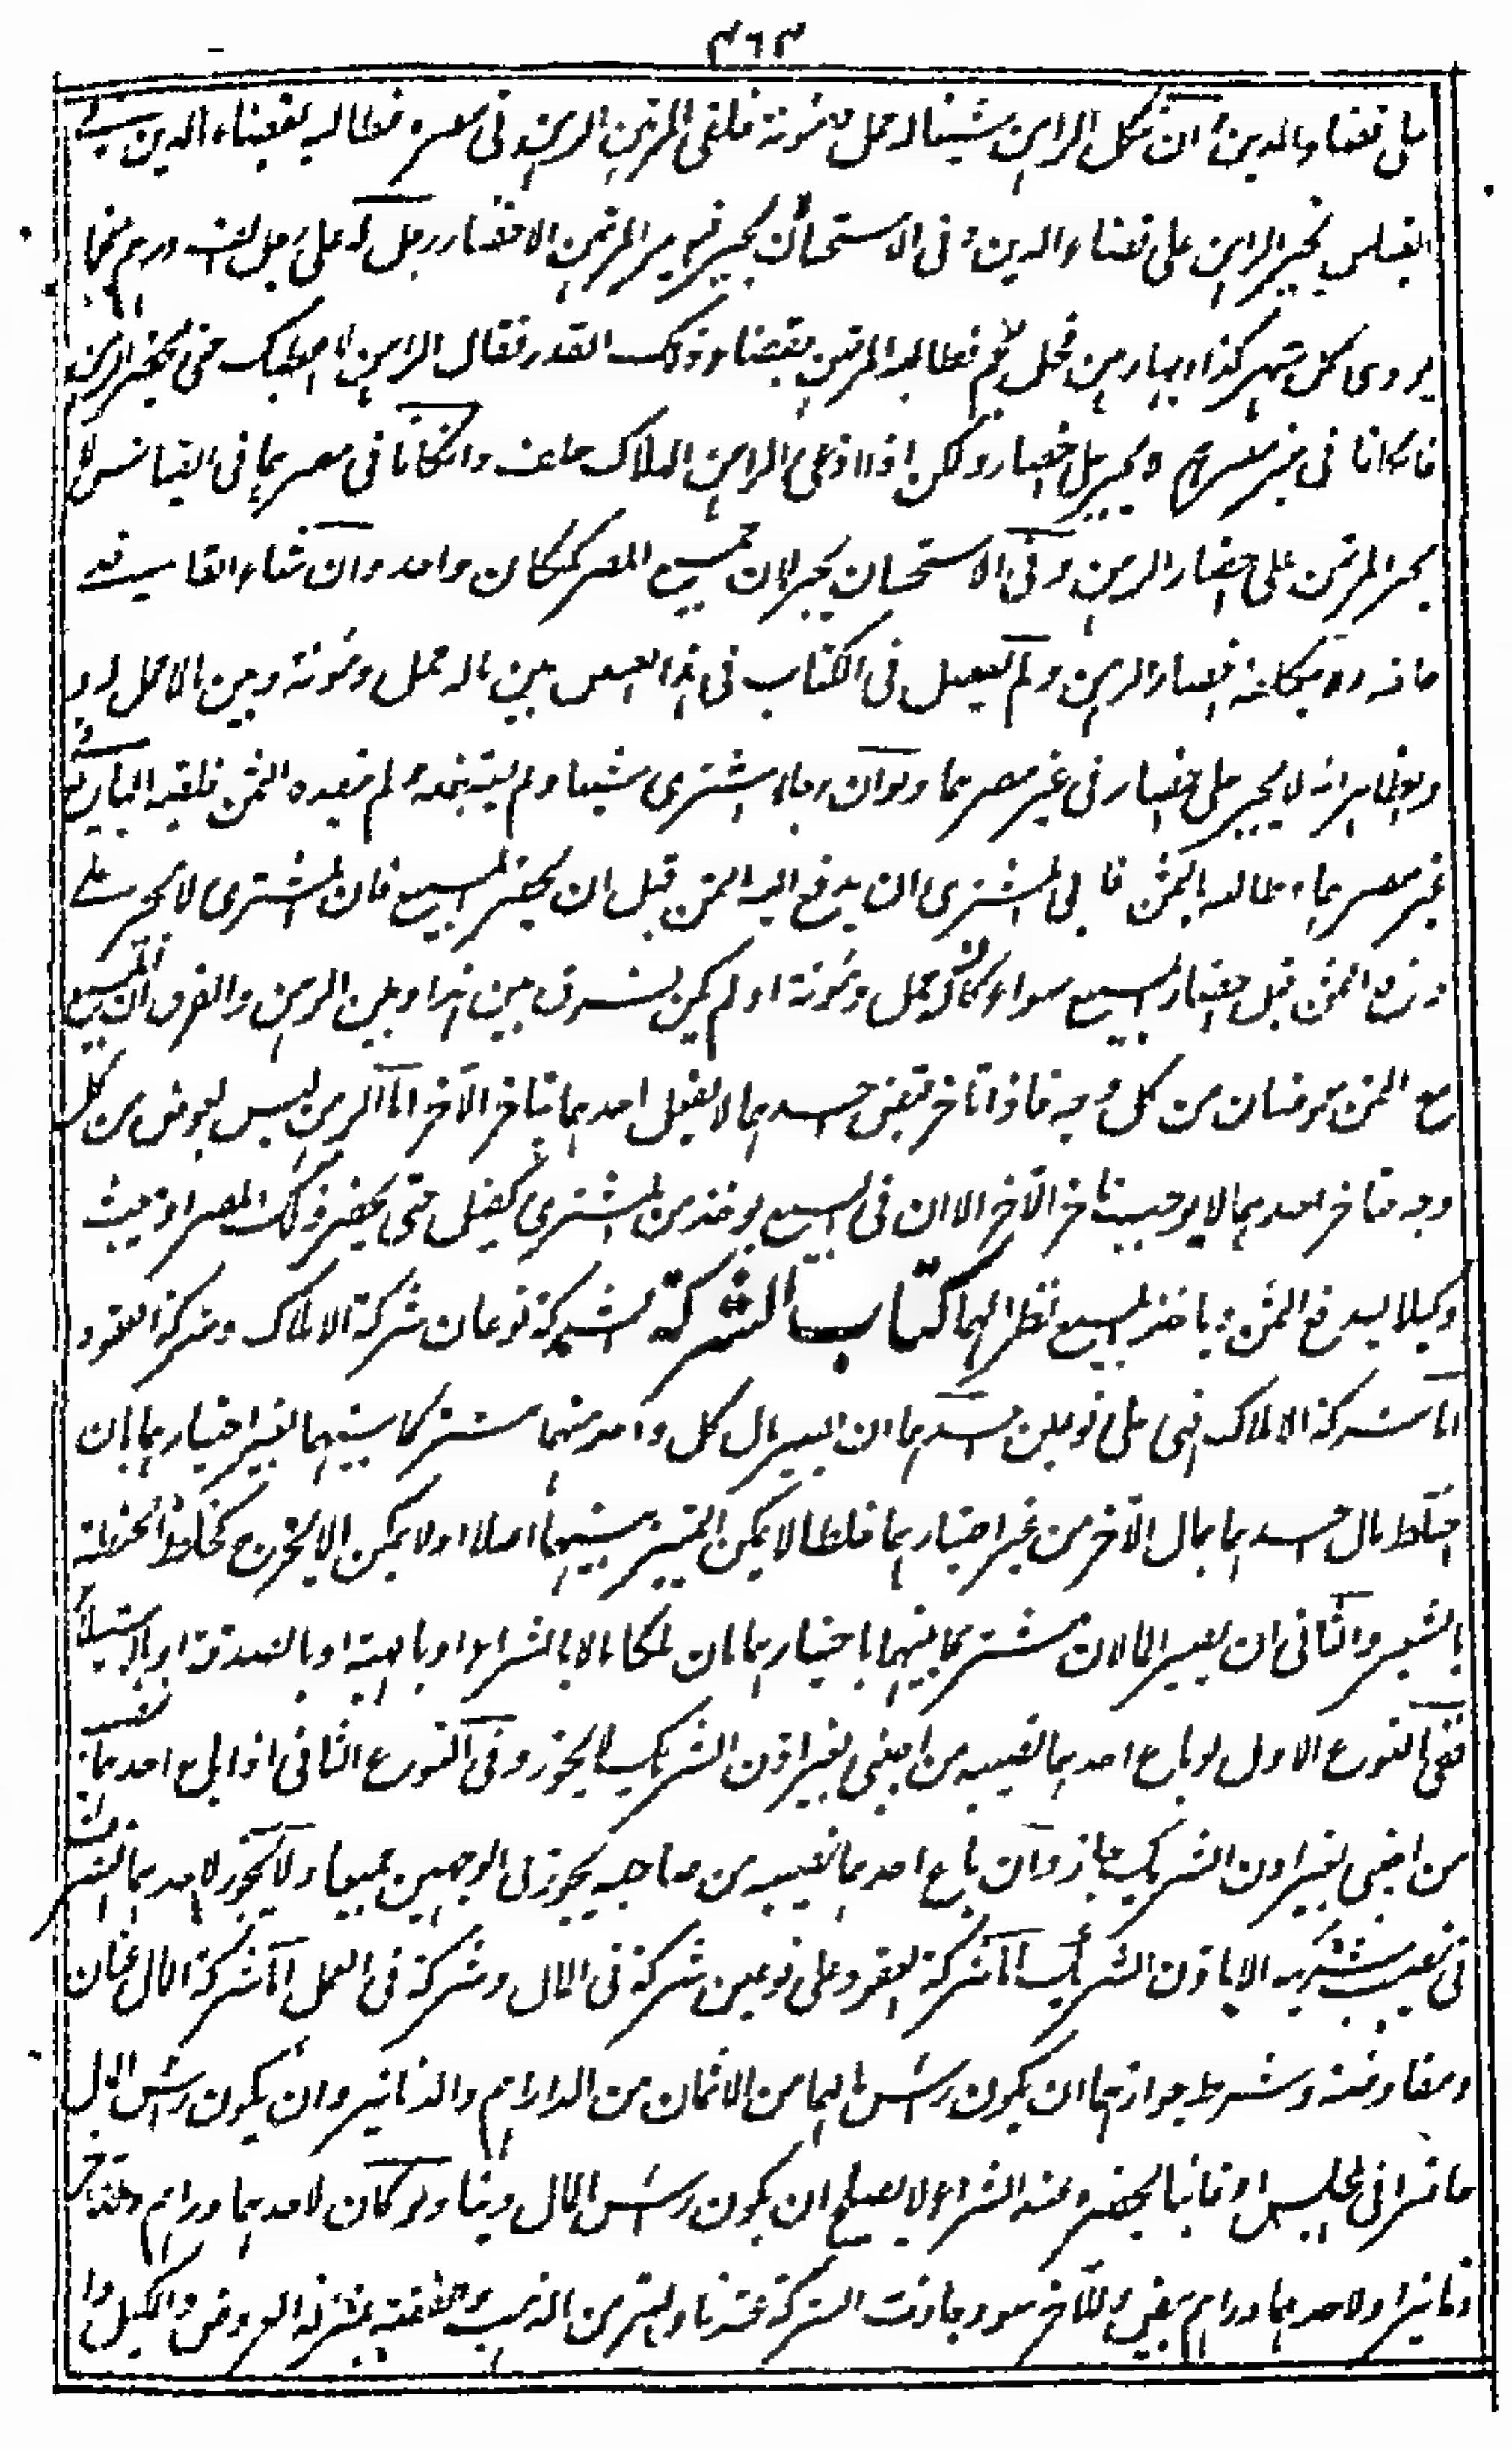 ٤٦٣
على قضاء الدين وان كان الراهن شيئا له حمل ومؤنة فلقى المرتهن الراهن في مصره فطالبه بقضاء الدين في
القياس يجبر الراهن على قضاء الدين وفي الاستحسان يجبر المرتهن الاحضار رجل له على رجل الف درهم
يودى كل شهر كذا وبها رهن فحل نجم فطالبه المرتهن بقضاء ذلك القدر فقال الراهن لا اعطيك حتى تحضر الرهن
فان كانا في غير مصرهما لا يجبر على احضاره ولكن اذا ادعى الراهن الهلاك حلف وان كانا في مصرهما في القياس لا
يجبر المرتهن على احضار الرهن وفي الاستحسان يجبر لان جميع المصر كمكان واحد وان شاء القاضي
حلفه ولا يكلفه احضار الرهن ولم يفصل في الكتاب في هذا الفصل بين ما له حمل ومؤنة وبين ما لا حمل له
والظاهر انه لا يجبر على احضاره في غير مصرهما ولو ان رجلا اشترى شيئا ولم يقبضه ولم ينقده الثمن فلقيه البائع في
غير مصرهما وطالبه بالثمن فابى المشترى ان يدفع اليه الثمن قبل ان يحضر المبيع فان المشترى لا يجبر على
دفع الثمن قبل احضار المبيع سواء كان له حمل ومؤنة او لم يكن لفرق بين هذا وبين الرهن والفرق ان المبيع
مع الثمن عوضان من كل وجه فاذا تاخر قبض احدهما لا يفعل احدهما بتاخر الآخر اما الرهن ليس بعوض من كل
وجه فتاخر احدهما لا يوجب تاخر الآخر الا ان في البيع يوخذ من المشترى كفيل حتى يحضر ذلك المصر او يبعث
وكيلا ليدفع الثمن وياخذ المبيع نظرا لهما كتاب الشركة الشركة نوعان شركة الاملاك وشركة العقود
اما شركة الاملاك فهي على نوعين احدهما ان يصير مال كل واحد منهما مشتركا بينهما بغير اختيارهما بان
اختلط مال احدهما بمال الآخر من غير اختيارهما خلطا لا يمكن التمييز بينهما اصلا او لا يمكن الا بحرج كخلط الحنطة
بالشعير والثانى ان يصير المالان مشتركا بينهما باختيارهما بان ملكا مالا بالشراء او بالهبة او بالصدقة او بالاستيلاء
ففى النوع الاول لو باع احدهما نصيبه من اجنبى بغير اذن الشريك لا يجوز وفى النوع الثانى اذا باع احدهما نصيبه
من اجنبى بغير اذن الشريك جاز وان باع احدهما نصيبه من صاحبه يجوز فى الوجهين جميعا ولا يجوز لاحدهما التصرف
فى نصيب شريكه الا باذن الشريك اما شركة العقود على نوعين شركة فى المال وشركة فى العمل اما شركة المال عنان
ومفاوضة وشرط جوازهما ان يكون رأس مالهما من الاثمان من الدراهم والدنانير وان يكون رأس المال
حاضرا فى المجلس او غائبا يحضر عند الشراء ولا يصلح ان يكون رأس المال دينا ولو كان لاحدهما دراهم وللآخر
دنانير او لاحدهما دراهم بيض وللآخر سود جازت الشركة عندنا والتبر من الذهب والفضة بمنزلة العروض والمكيل